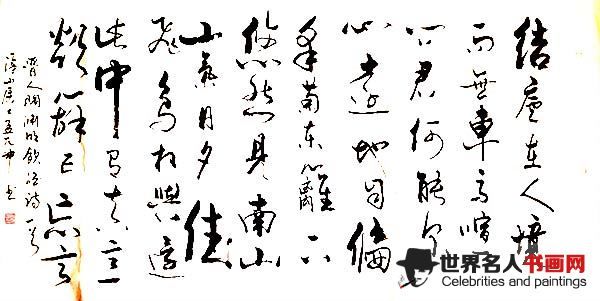 結廬在人境
而無車馬喧
问君何能尔
心遠地自偏
采菊东籬下
悠然見南山
山氣日夕佳
飛鳥相與還
此中有真意
欲辨已忘言
晋人陶渊明飲酒诗一首
世界名人书画网
Celebrities and paintings